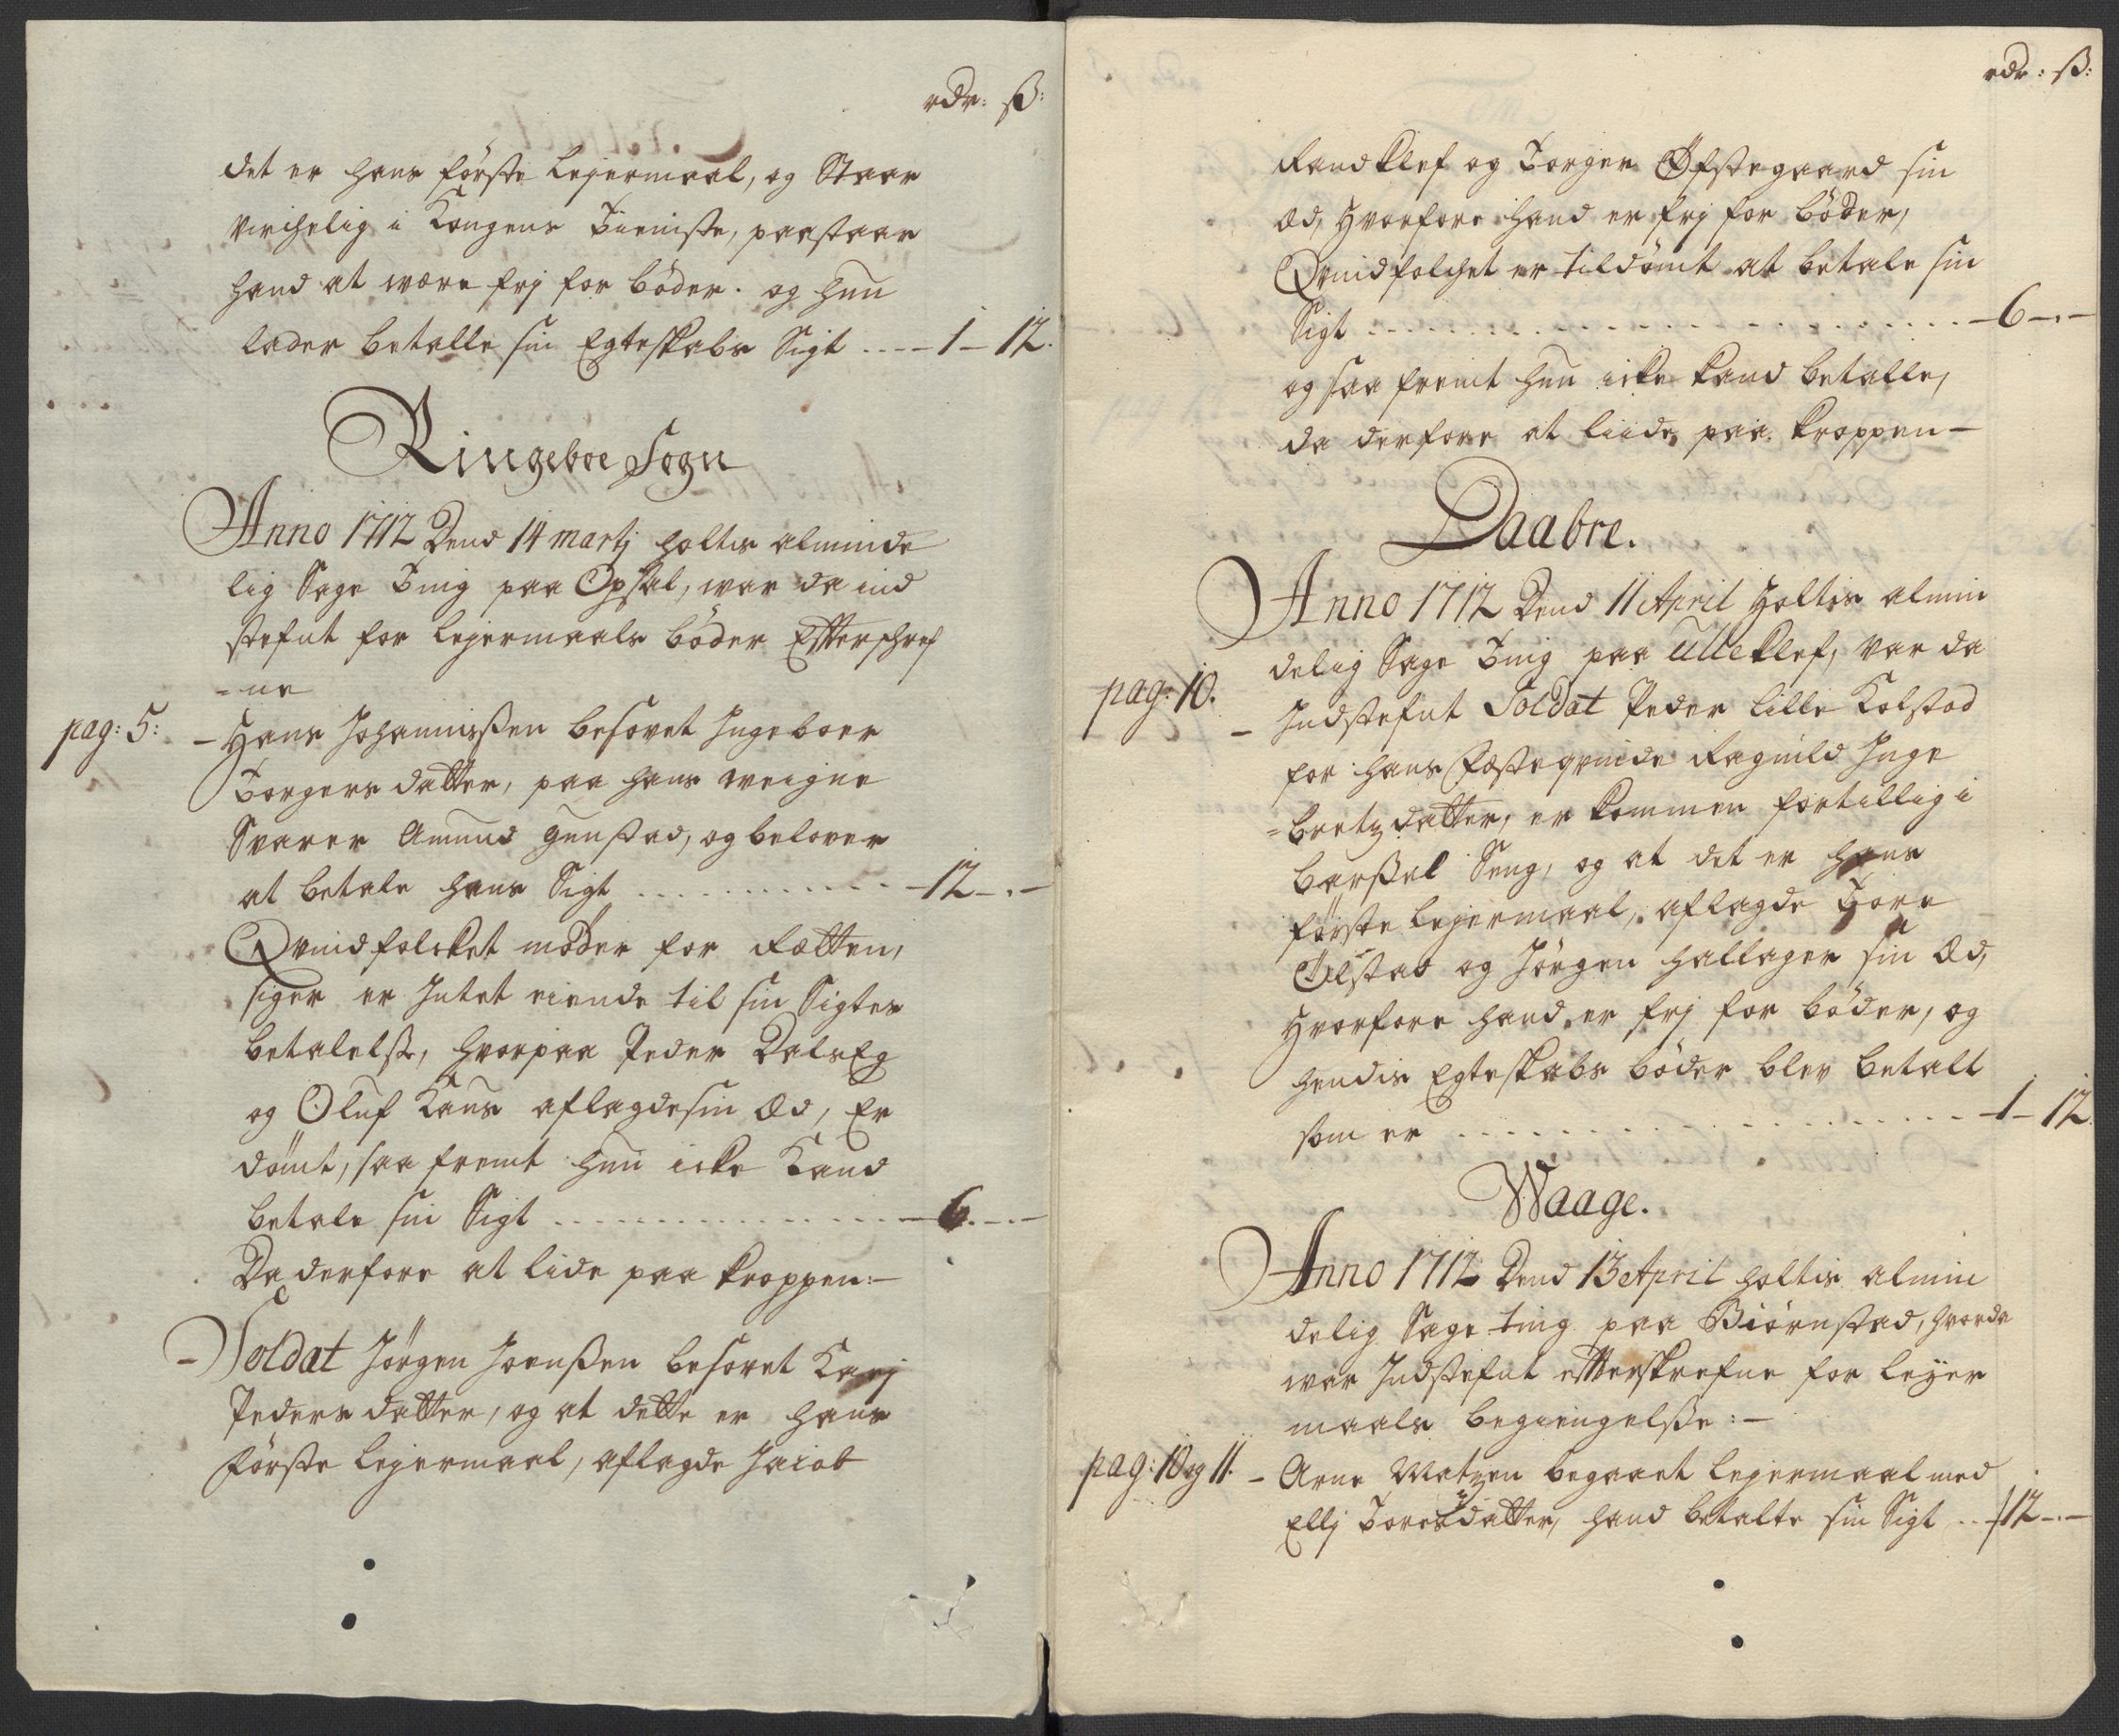 rdr: ß:
det er hans förste Lejermaal, og Staar
virchelig i Kongens Tieniste, paastaar
hand at være frj for böder. og hun
lader betalle sin Egteskabs Sigt ---- 1 - 12.
Ringeboe Sogn
Anno 1712 Dend 14 martj holtis alminde
lig Sage Ting paa Opsal, war da ind
stefnt for Lejermaals böder Efterschref
=ne
pag: 5: - Hans Johannisßen besovet Ingeboer
Torgers datter, paa hans weigne
Svarer Amund Gunstad, og belover
at betale hans Sigt ---- 12 - . -
Qvindfolcket möder for Rætten,
siger er Intet eiende til sin Sigtes
betalelse, hvorpaa Peder Dalseg
og Oluf Kaus aflagde sin Æd, Er
dömt, saa fremt hun icke kand
betale sin Sigt ---- 6. - -
Da derfore at lide paa kroppen:-
- Soldat Jörgen Joensßen besovet Karj
Peders datter, og at dette er hans
förste Lejermaal, aflagde Jacob
rdr: ß:
Randklef og Torger Öfstegaard sin
Æd, Hvorfore hand er frj for böder,
Qvindfolchet er tildömt at betale sin
Sigt ---- 6 - . -
og saa fremt hun icke kand betalle,
da derfore at liide paa kroppen -
Daabre.
Anno 1712 Dend 11 April Holtis almin
delig Sage Ting paa Ulleklef, var da
pag: 10. - Indstefnt Soldat Peder Lille Kolstad
for hans Fæsteqvinde Ragnild Inge
=bretz datter, er kommen fortillig i
barßel Seng, og at det er hans
förste Lejermaal, aflagde Tore
Ölstad og Jörgen Hallager sin Æd,
Hvorfore hand er frj for böder, og
hendis Egteskabs böder blev betalt
som er ---- 1 - 12.
Waage.
Anno 1712 Dend 13 April holtis almin
delig Sage ting paa Biörnstad, hvor da
war Indstefnt efterskrefne for Leÿer
maals begiengelsße:-
pag: 10 og 11. - Arne Matzen begaaet Lejermaal med
Ellj Toresdatter, hand betalte sin Sigt -- 12 - . -